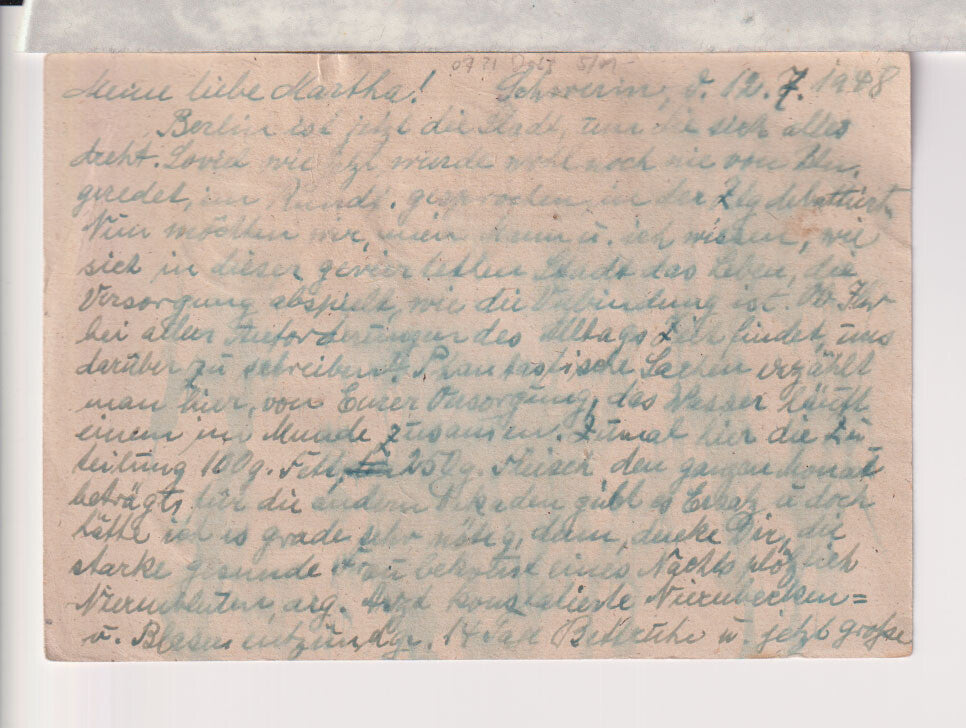 Meine liebe Martha! Schwerin, d. 12.7.1948
Berlin ist jetzt die Stadt, um die sich alles
dreht. Soviel wie jetzt wurde wohl noch nie von Bln.
geredet, im Rundf. gesprochen, in der Ztg debattiert.
Nun möchten wir, mein Mann u. ich wissen, wie
sich in dieser gevierteilten Stadt das Leben, die
Versorgung abspielt, wie die Verbindung ist. Ob Ihr
bei allen Anforderungen des Alltags Zeit findet, uns
darüber zu schreiben? Phantastische Sachen erzählt
man hier, von Eurer Versorgung, das Wasser läuft
einem im Munde zusammen. Zumal hier die Zu
teilung 100g. Fett, 250g. Fleisch den ganzen Monat
beträgt, für die andern Dekaden gibt es Ersatz u doch
hätte ich es grade sehr nötig, denn, denke Dir, die
starke gesunde Frau bekommt eines Nachts plötzlich
Nierenbluten, arg. Arzt konstatierte Nierenbecken=
u. Blasenentzündg. 14 Tage Bettruhe u. jetzt große